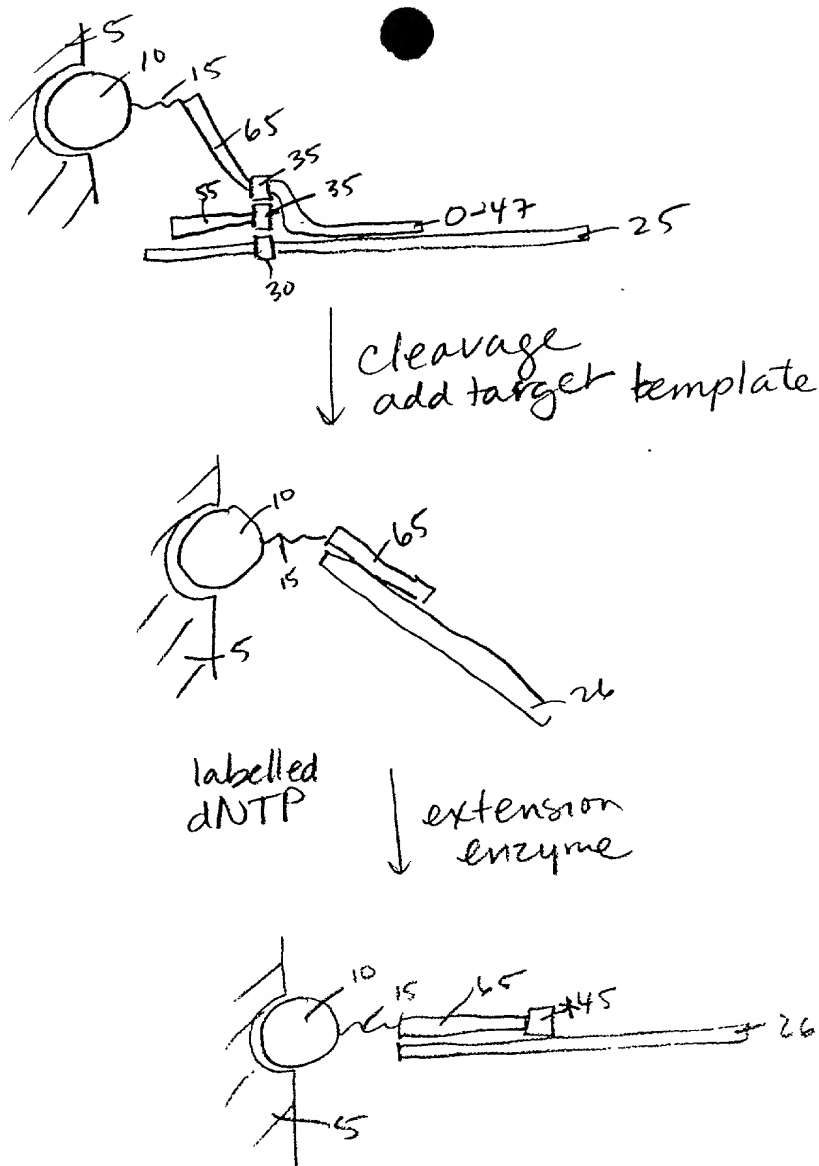 5
10
15
65
35
35
55
0-47
25
30
cleavage
add target template
10
65
15
5
26
labelled
dNTP
extension
enzyme
10
15
65
*45
26
5